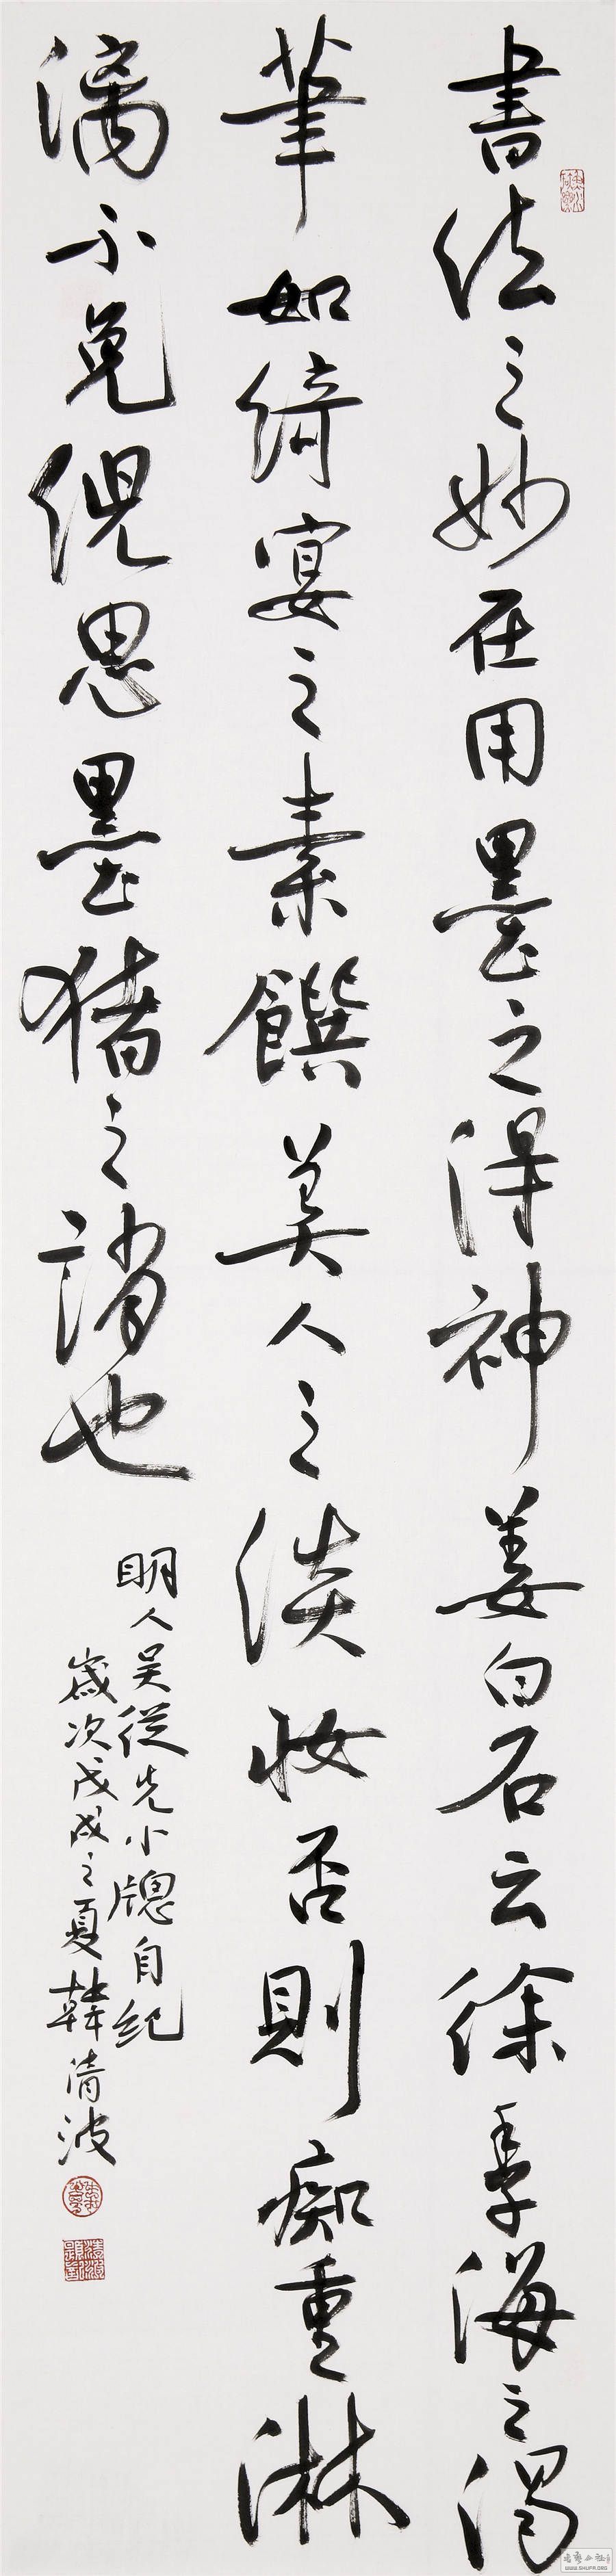 書法之妙在用墨之得神姜白石云徐季海之渴
筆如綺宴之素饌美人之淡妝否則痴重淋
漓不免倪思墨猪之誚也
明人吴從先小牕自紀
歲次戊戌之夏韓清波
WWW.SHUFR.ORG